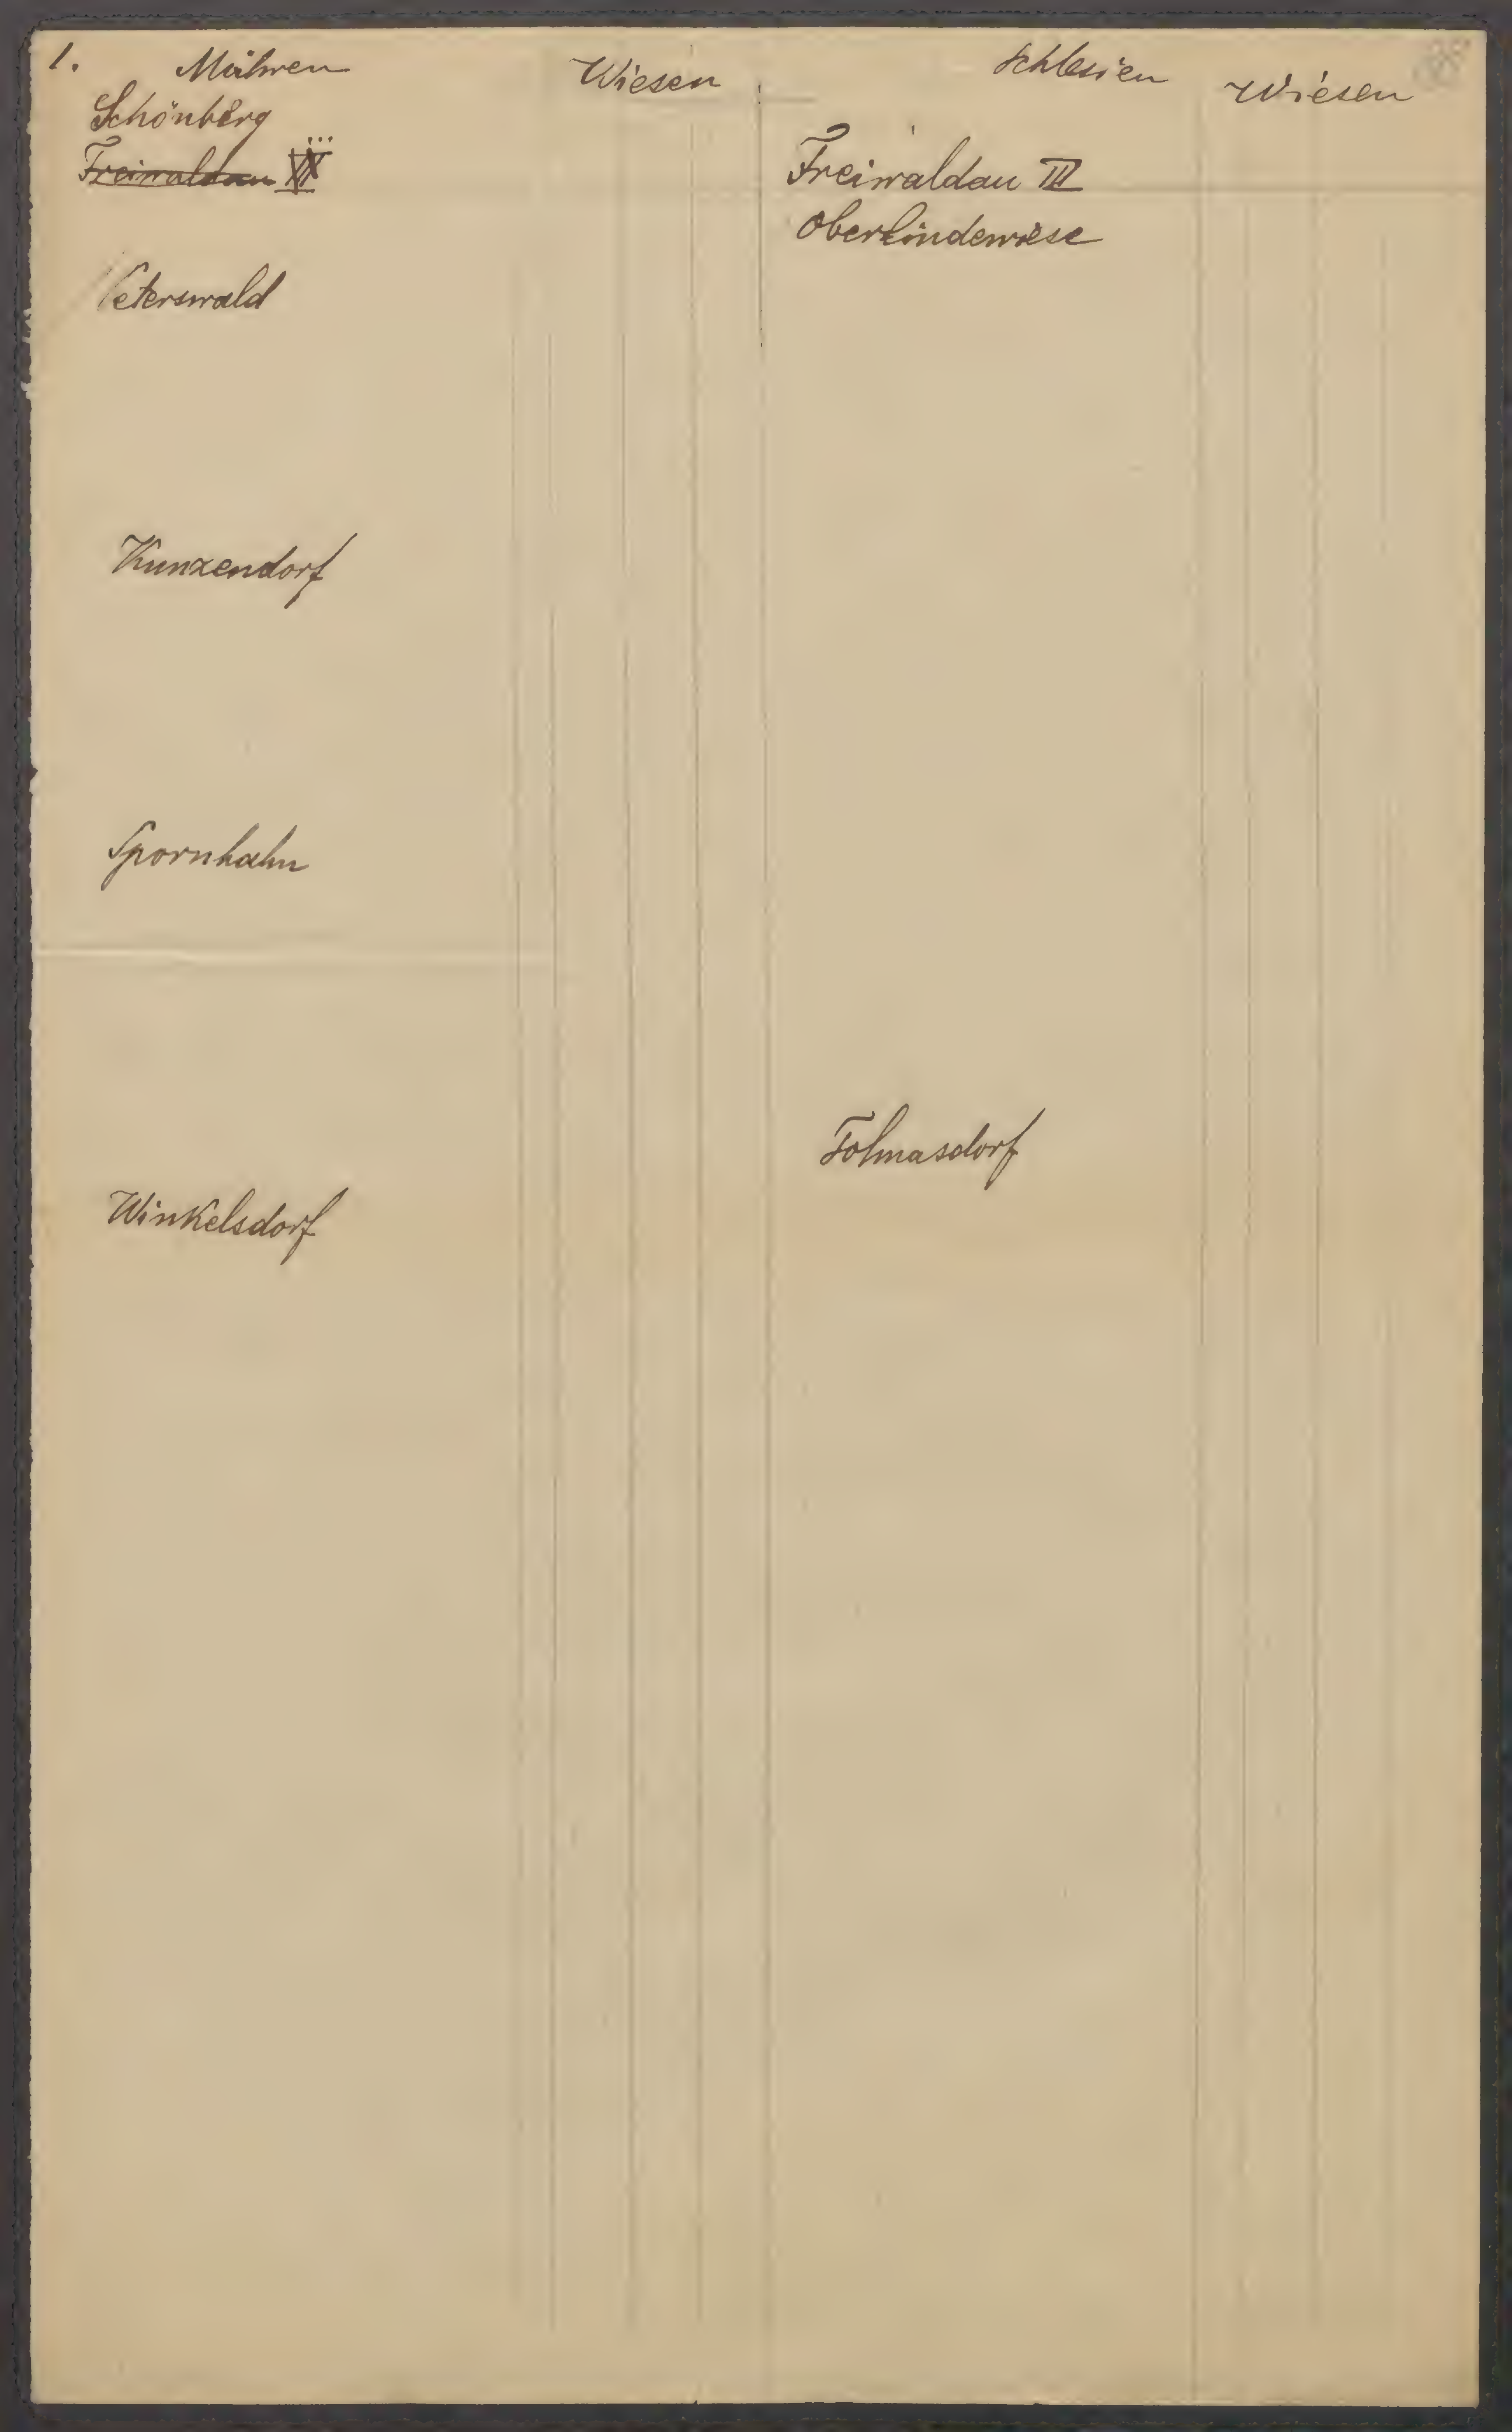 1. Mähren Wiesen Schlesien Wiesen
Schönberg
Freiwaldau Freiwaldau III
Oberlindewiese
Peterswald
Kunzendorf
Spornhahn
Tolmasdorf
Winkelsdorf